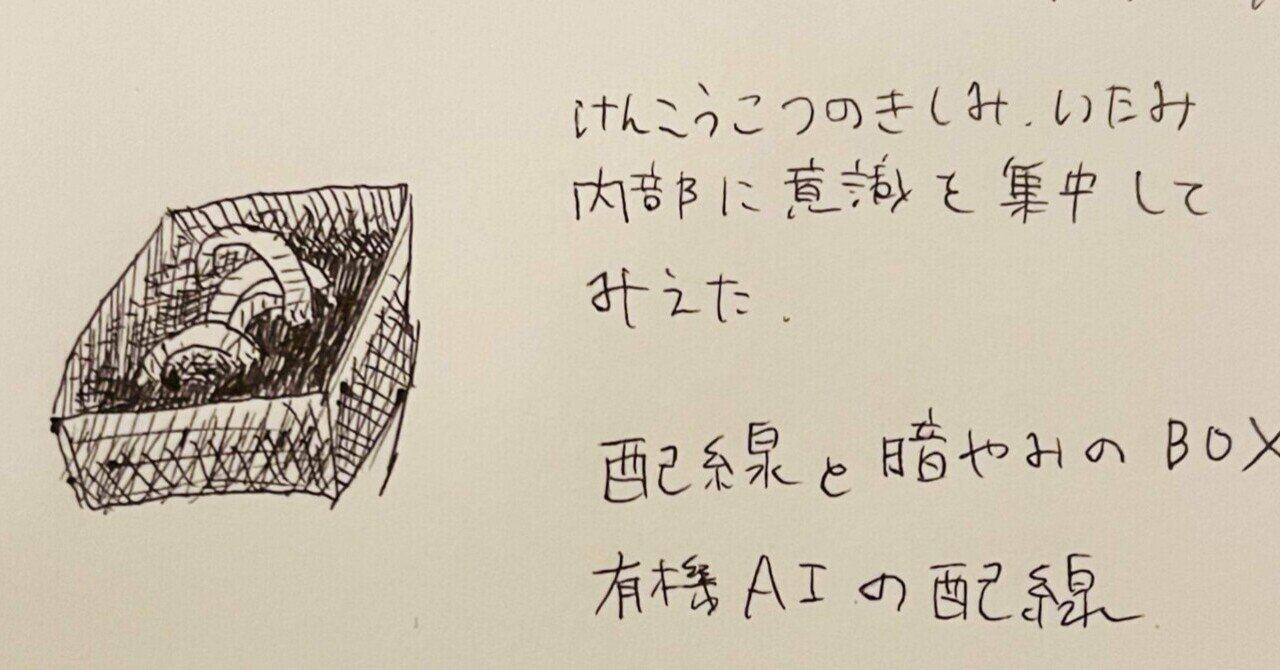 けんこうこつのきしみ.いたみ
内部に意識を集中して
みえた.
配線と暗やみのBOX
有機AIの配線